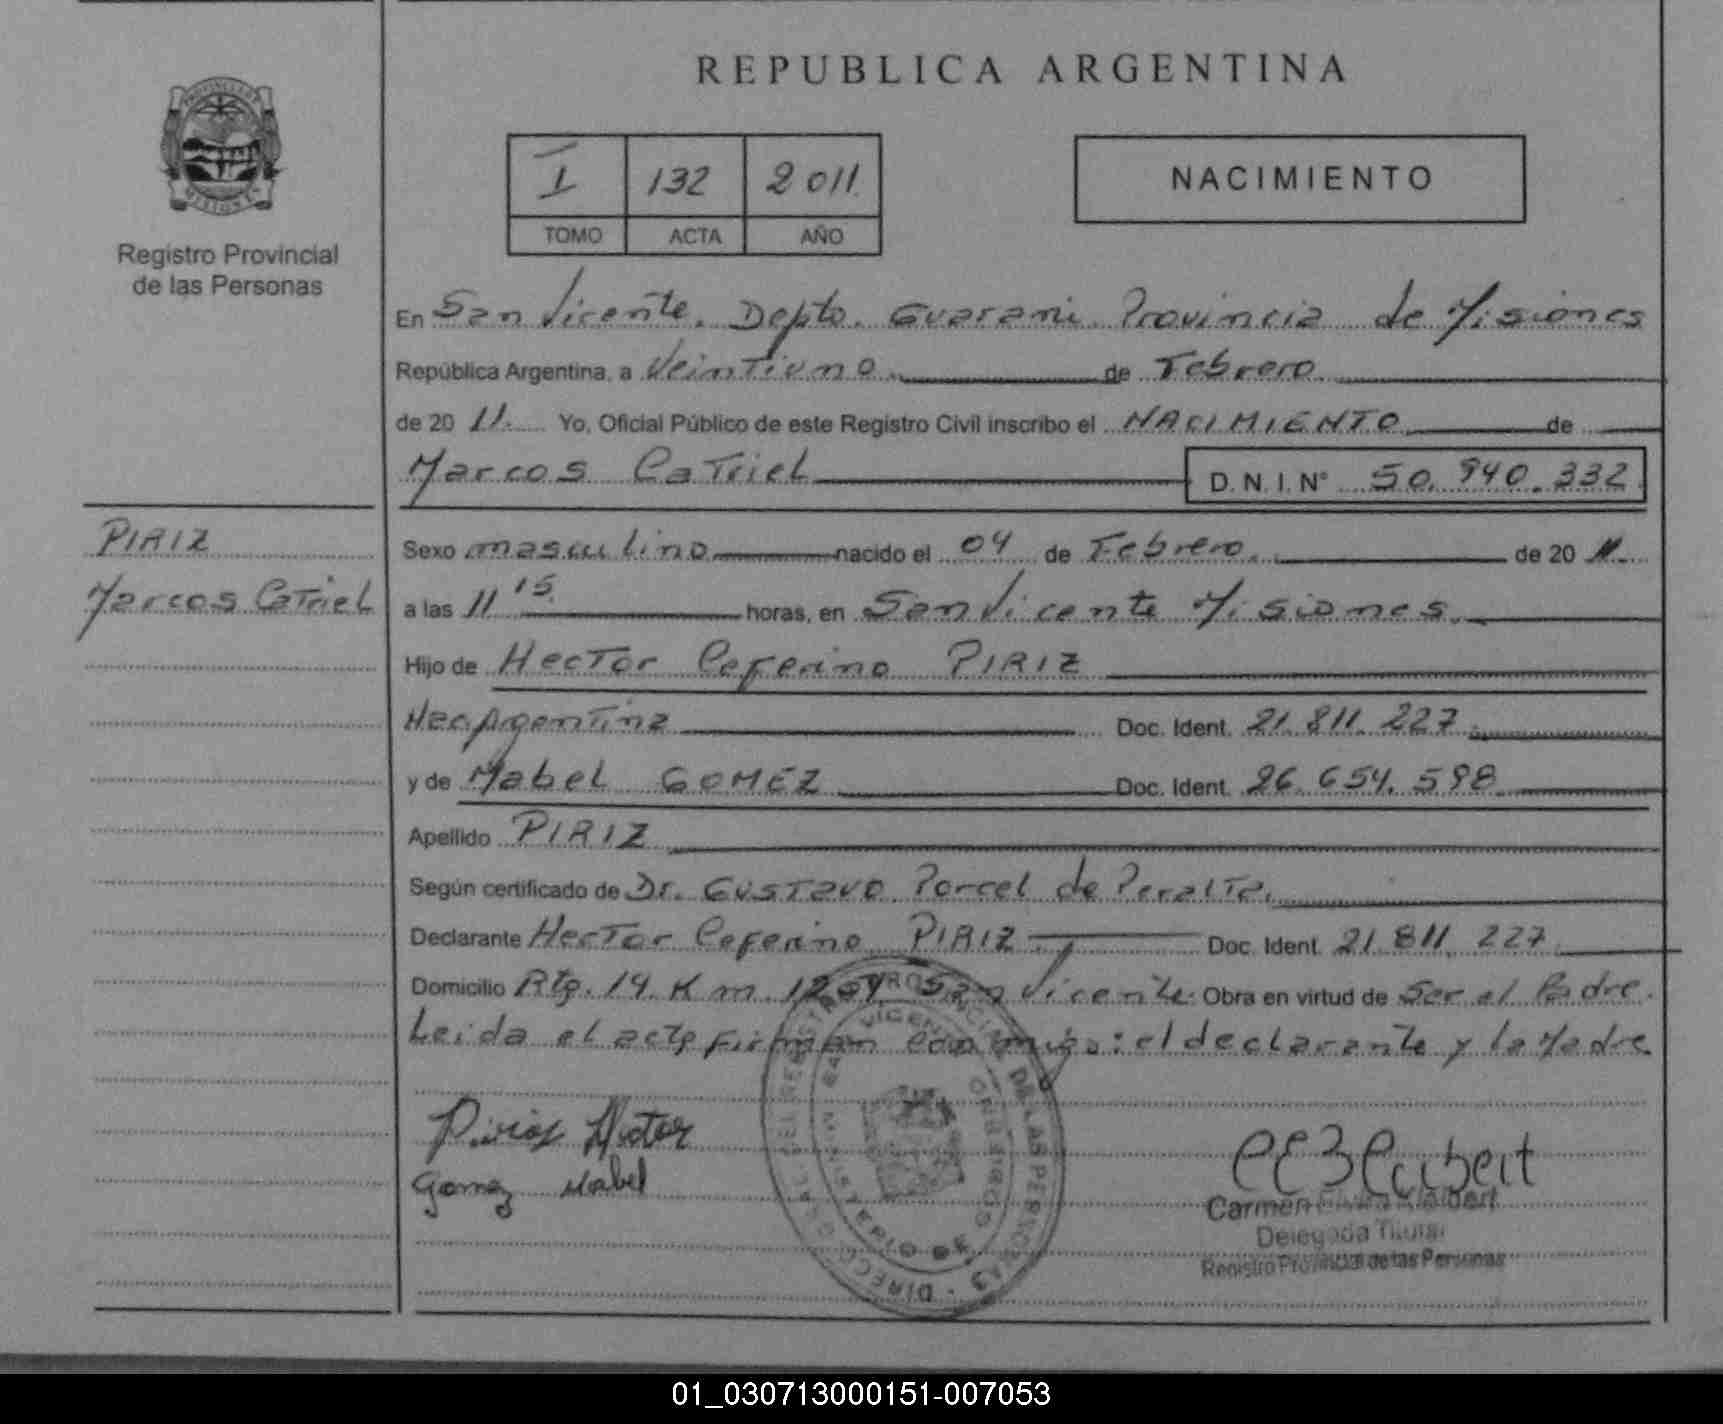 REPUBLICA ARGENTINA
I 132 2011
TOMO ACTA AÑO
NACIMIENTO
Registro Provincial
de las Personas
En San Vicente. Depto. Guarani Provincia de Misiones
República Argentina, a Veintiuno de Febrero
de 20 11. Yo, Oficial Público de este Registro Civil inscribo el NACIMIENTO de
Marcos Catriel D. N. I. N° 50.940.332
PIRIZ
Marcos Catriel
Sexo masculino nacido el 04 de Febrero. de 20 11.
a las 11 15. horas, en San Vicente Misiones.
Hijo de Hector Ceferino PIRIZ
Nac. Argentina Doc. Ident. 21.811.227.
y de Mabel GOMEZ Doc. Ident. 26.654.598
Apellido PIRIZ
Según certificado de Dr. Gustavo Porcel de Peralta.
Declarante Hector Ceferino PIRIZ Doc. Ident. 21.811.227
Domicilio Rta. 14 Km San Vicente. Obra en virtud de Ser el Padre.
Leida el acta firman conmigo: el declarante y la Madre
Piriz Hector
Gomez Mabel
Carmen Elvira
Delegada Titular
Registro Provincial de las Personas
01_030713000151-007053